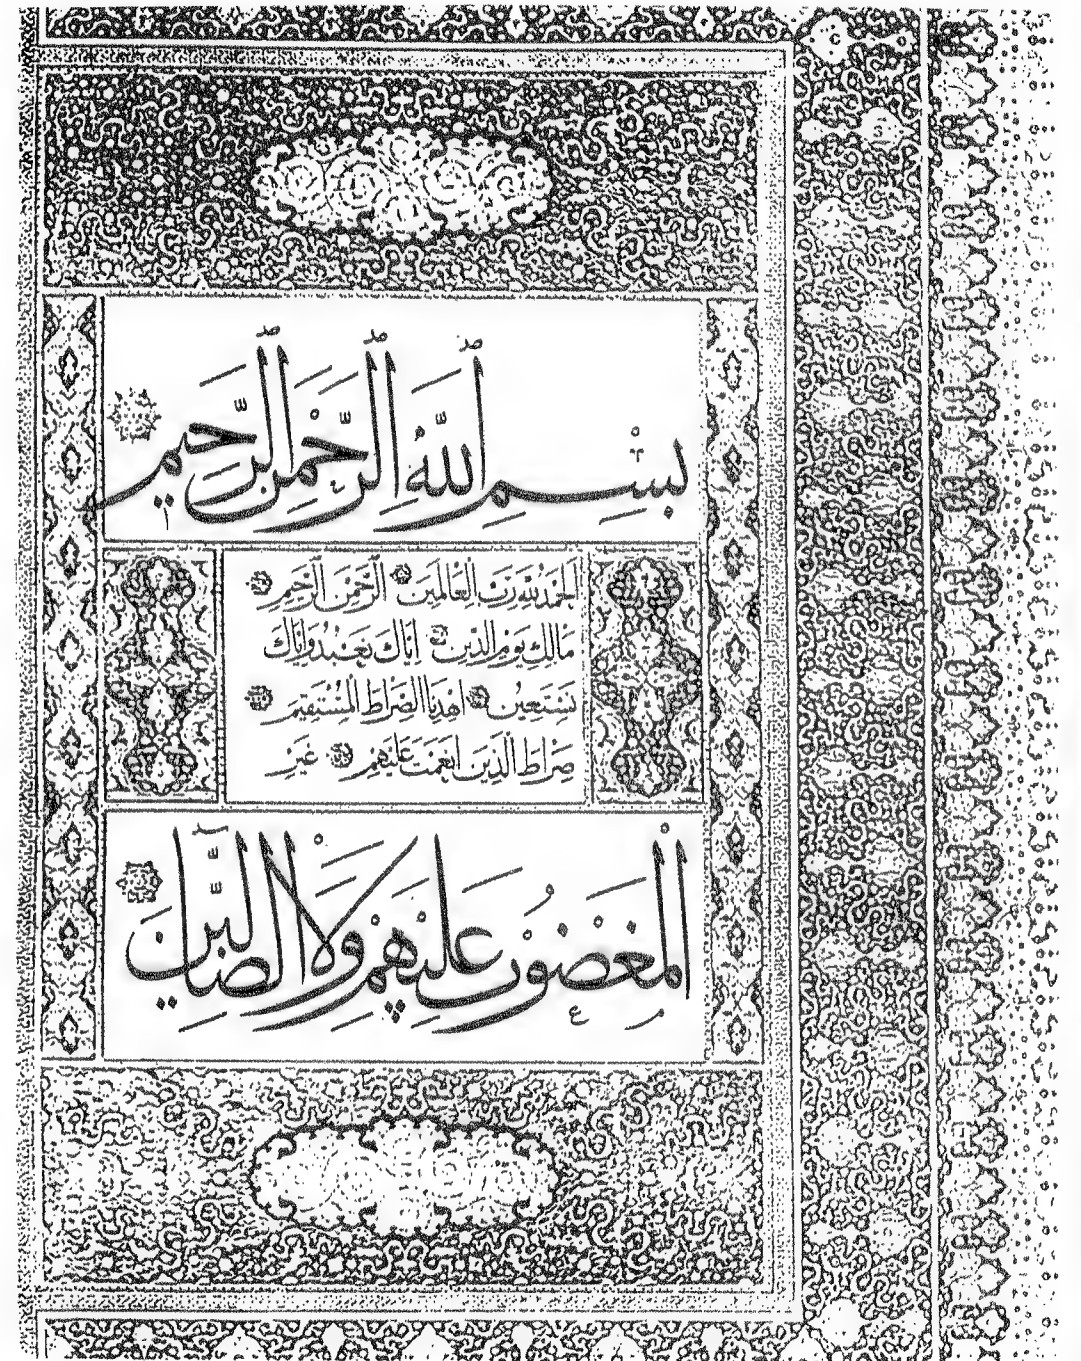 بِسْمِ ٱللَّهِ ٱلرَّحْمَٰنِ ٱلرَّحِيمِ
اَلْحَمْدُ لِلَّهِ رَبِّ الْعَالَمِينَ الرَّحْمَنِ الرَّحِيمِ
مَالِكِ يَوْمِ الدِّينِ اِيَّاكَ نَعْبُدُ وَاِيَّاكَ
نَسْتَعِينُ اهْدِنَا الصِّرَاطَ الْمُسْتَقِيمَ
صِرَاطَ الَّذِينَ اَنْعَمْتَ عَلَيْهِمْ غَيْرِ
الْمَغْضُوبِ عَلَيْهِمْ وَلَا الضَّالِّينَ